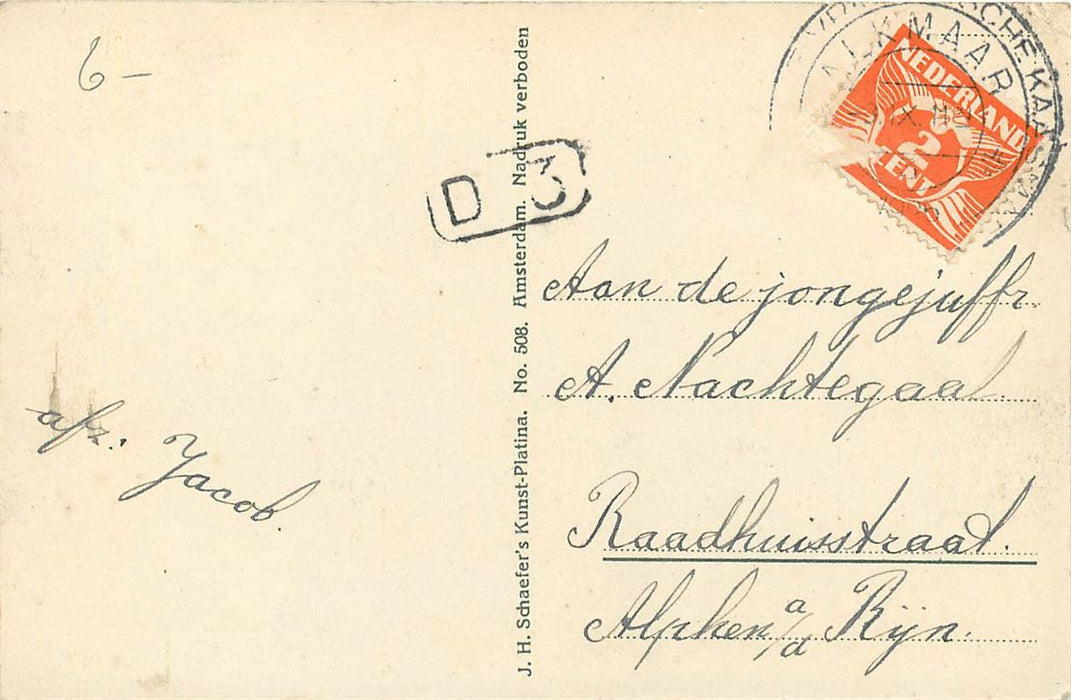 6 –
D 3
ALKMAAR
NEDERLAND
2
CENT
Aan de jongejuffr.
A. Nachtegaal
Raadhuisstraat.
Alphen a/d Rijn.
afz. Jacob.
J. H. Schaefer's Kunst-Platina. No. 508. Amsterdam. Nadruk verboden